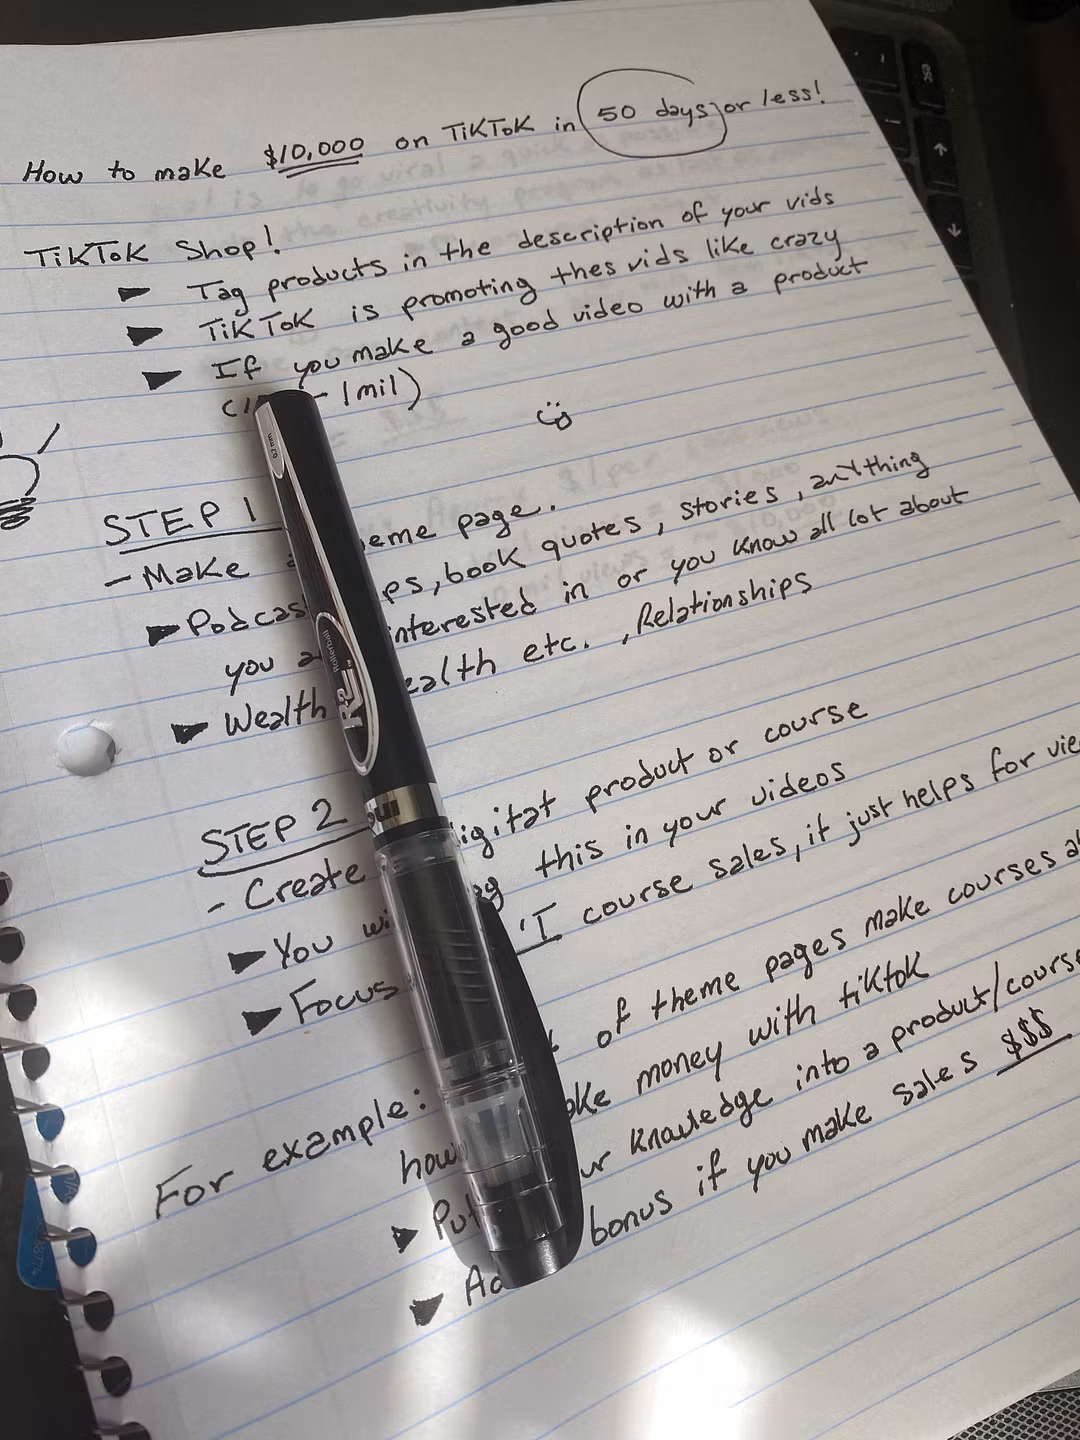 How to make $10,000 on TikTok in 50 days or less!
TikTok Shop!
Tag products in the description of your vids
TikTok is promoting thes vids like crazy
If you make a good video with a product
- 1mil)
STEP 1
- Make eme page.
Podcas ps, book quotes, stories, anything
you a interested in or you know all lot about
Wealth ealth etc. , Relationships
STEP 2
- Create igital product or course
You wi ag this in your videos
Focus 'T course sales, it just helps for vie
For example: of theme pages make courses a
how ake money with tiktok
Put ur knowledge into a product/course
Ad bonus if you make sales $$$
0.7 mm
Rollerball
esc